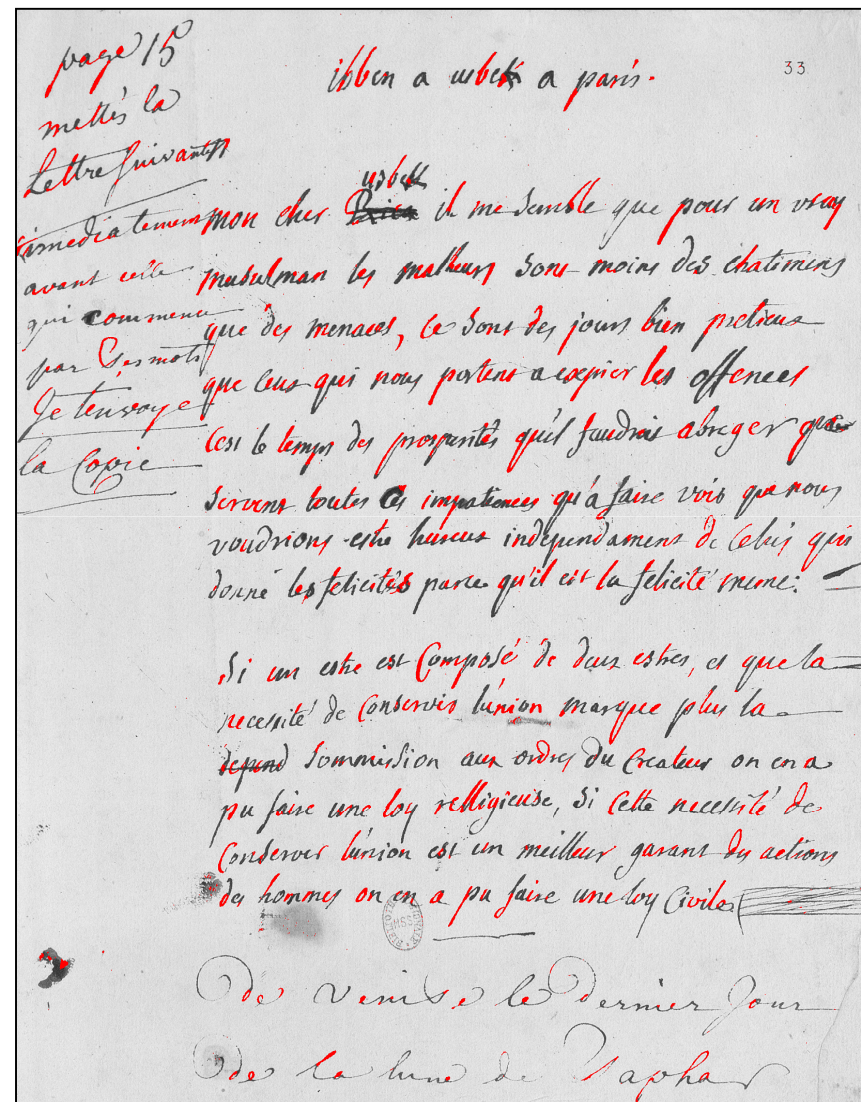 page 15
mettés la
Lettre Suivante
imediatement
avant celle
qui commence
par ses mots
Je t'envoye
la Copie
33
ibben a usbek a paris.
usbek
mon cher il me semble que pour un vray
musulman les malheurs sont moins des chatimens
que des menaces, ce sont des jours bien pretieux
que ceux qui nous portent a expier les offences
c'est le temps des prosperités qu'il faudroit abreger que
servent toutes ces impatiences qu'a faire voir que nous
voudrions estre hureux independament de celuis qui
donne les felicités parce qu'il est la felicité meme.
Si un estre est Composé de deux estres, et que la
necessité de Conserver l'union marque plus la
depend sommission aux ordres du Createur on en a
pu faire une loy relligieuse, Si Cette necessité de
Conserver l'union est un meilleur garant des actions
des hommes on en a pu faire une loy Civile
de venise le dernier Jour
de la lune de Saphar